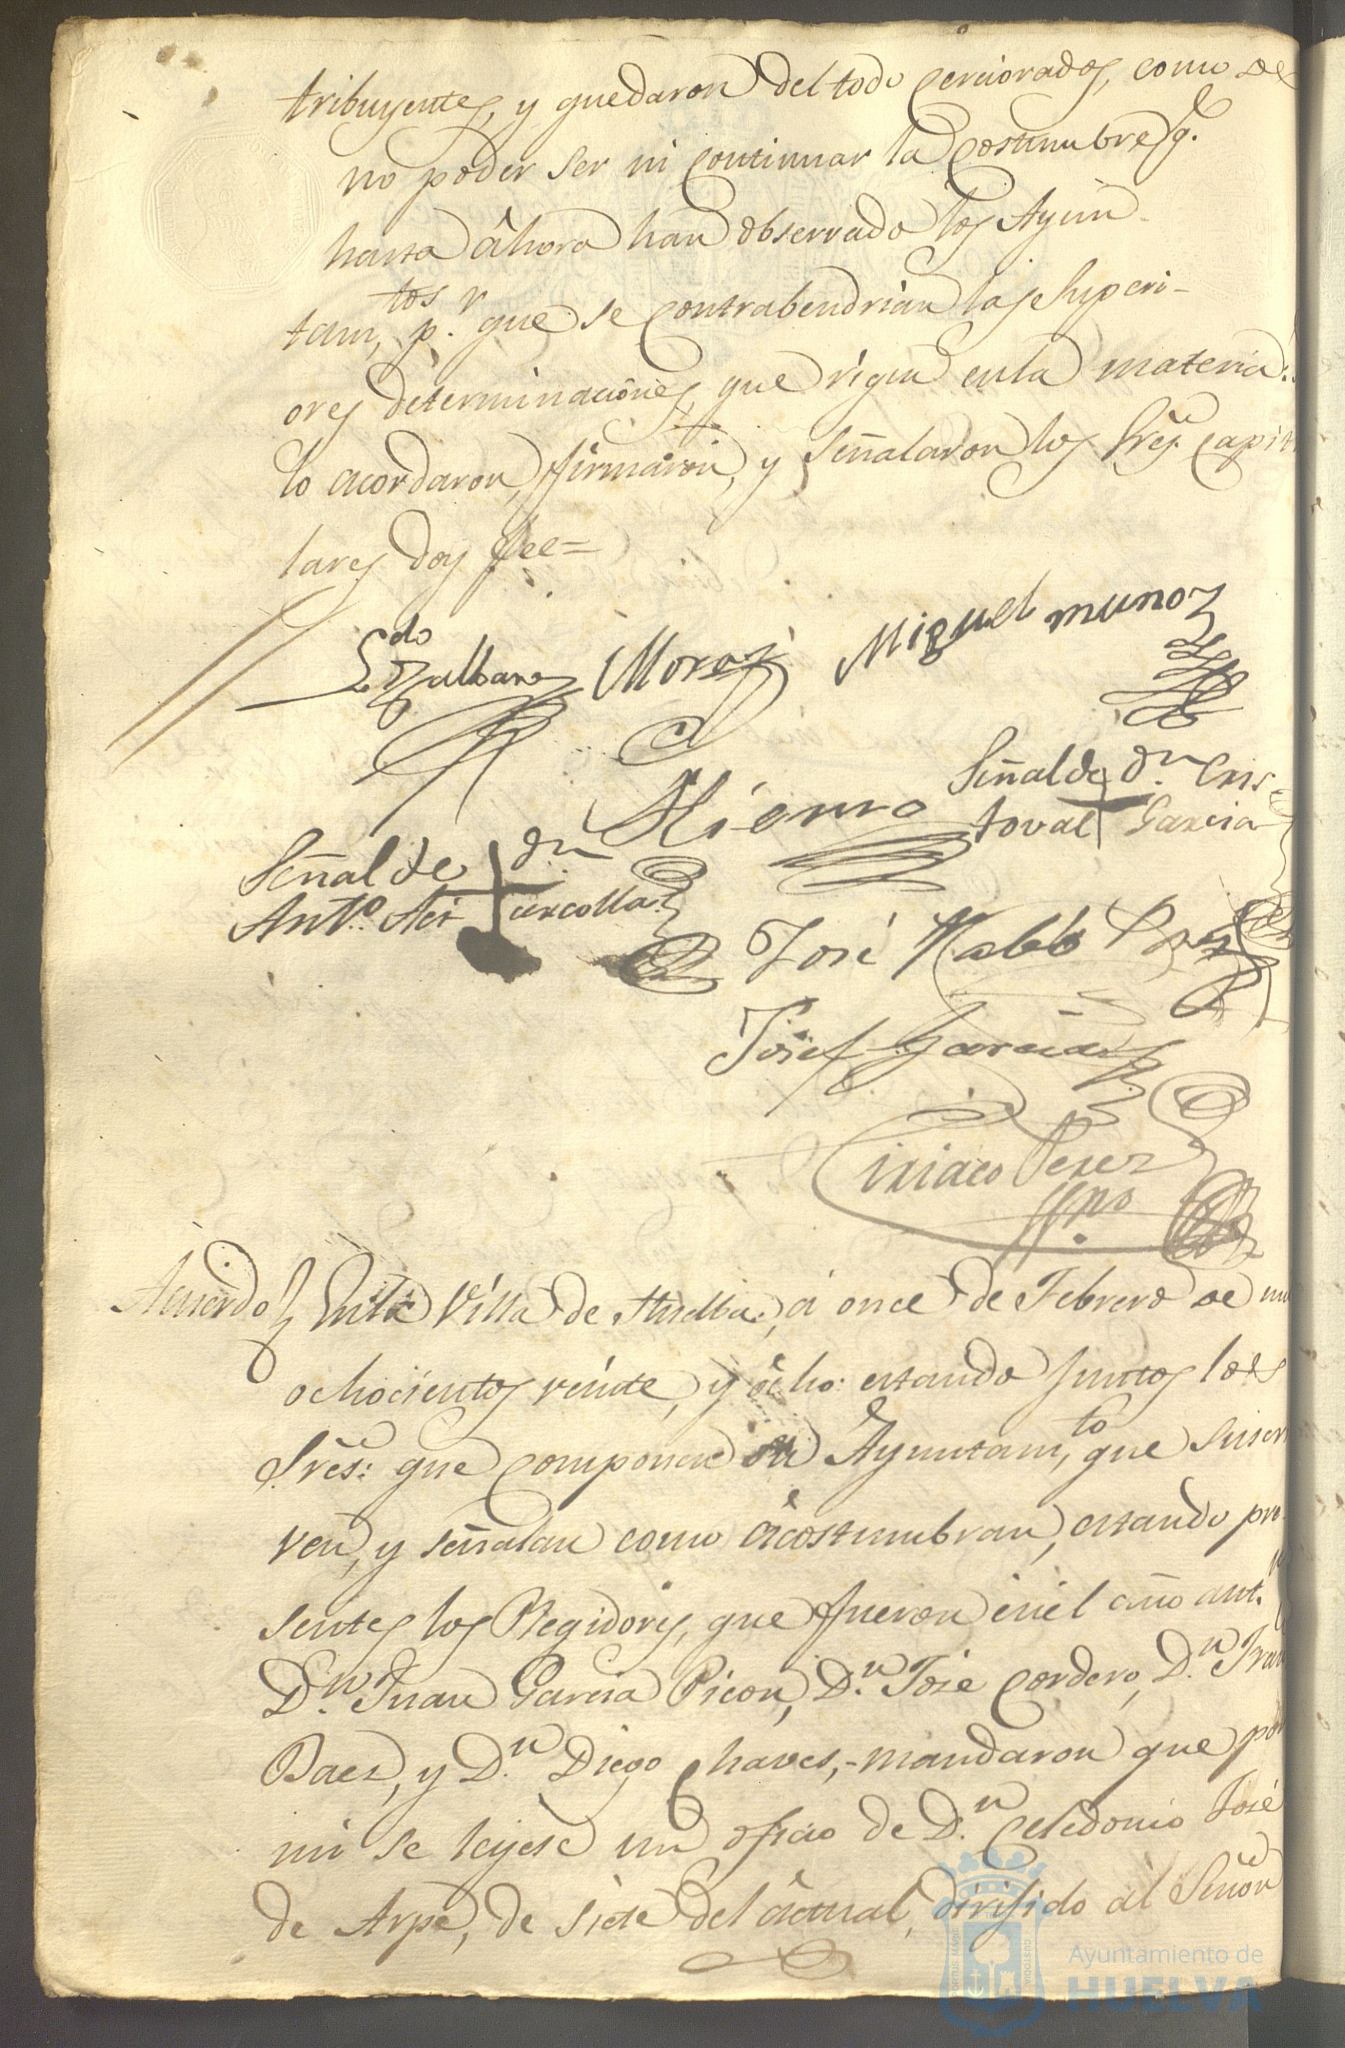 tribuyentes, y quedaron del todo cerciorados, como de
no poder ser ni continuar la costumbre q.e
hasta ahora han observado los Ayun-
tam,tos p.r que se contrabendrian las Superi-
ores determinaciones, que rigen enla materia:
lo acordaron, firmaron, y señalaron los Sres. Capitu
lares doy fee=
Ldo Zalbanes Mora Miguel munoz
Hierro
Señal de dn Cris
toval Garcia
Señal de dn
Anto.
José Perez
Josef Garcia
Ciriaco Perez
Ssno
Acuerdo En la Villa de Huelba, á once de Febrero de mil
ochocientos veinte, y ocho: estando juntos los
Sres: que componen su Ayuntam,to que suscri
ven, y señalan como acostumbran, estando pre
sentes los Regidores, que fueron en el año ant.r
D.n Juan Garcia Picon, D.n José Cordero, D.n Fran
Baez, y D.n Diego Chaves,- mandaron que por
mi se leyese un oficio de D.n Celedonio José
de Arpe, de siete del actual, dirijido al Señor
Ayuntamiento de
HUELVA